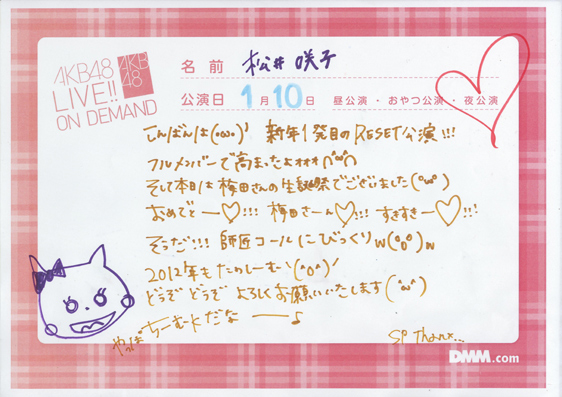 AKB48
LIVE!!
ON DEMAND
AKB
48
名前 松井 咲子
公演日 1月10日 昼公演・おやつ公演・夜公演
こんばんは(・ω・)' 新年1発目のRESET公演!!!
フルメンバーで高まったよォォォ (^ω^)
そして本日は梅田さんの生誕祭でございました(^ω^)
おめでとー♡!!! 梅田さーん♡!!! すきすきー♡!!!
そうだ!!! 師匠コールにびっくりw(°o°)w
2012年もたのしーむ'(^o^)'
どうぞどうぞよろしくお願いいたします(^ω^)
やっぱちーむKだなー♪
SP Thanx...
DMM.com